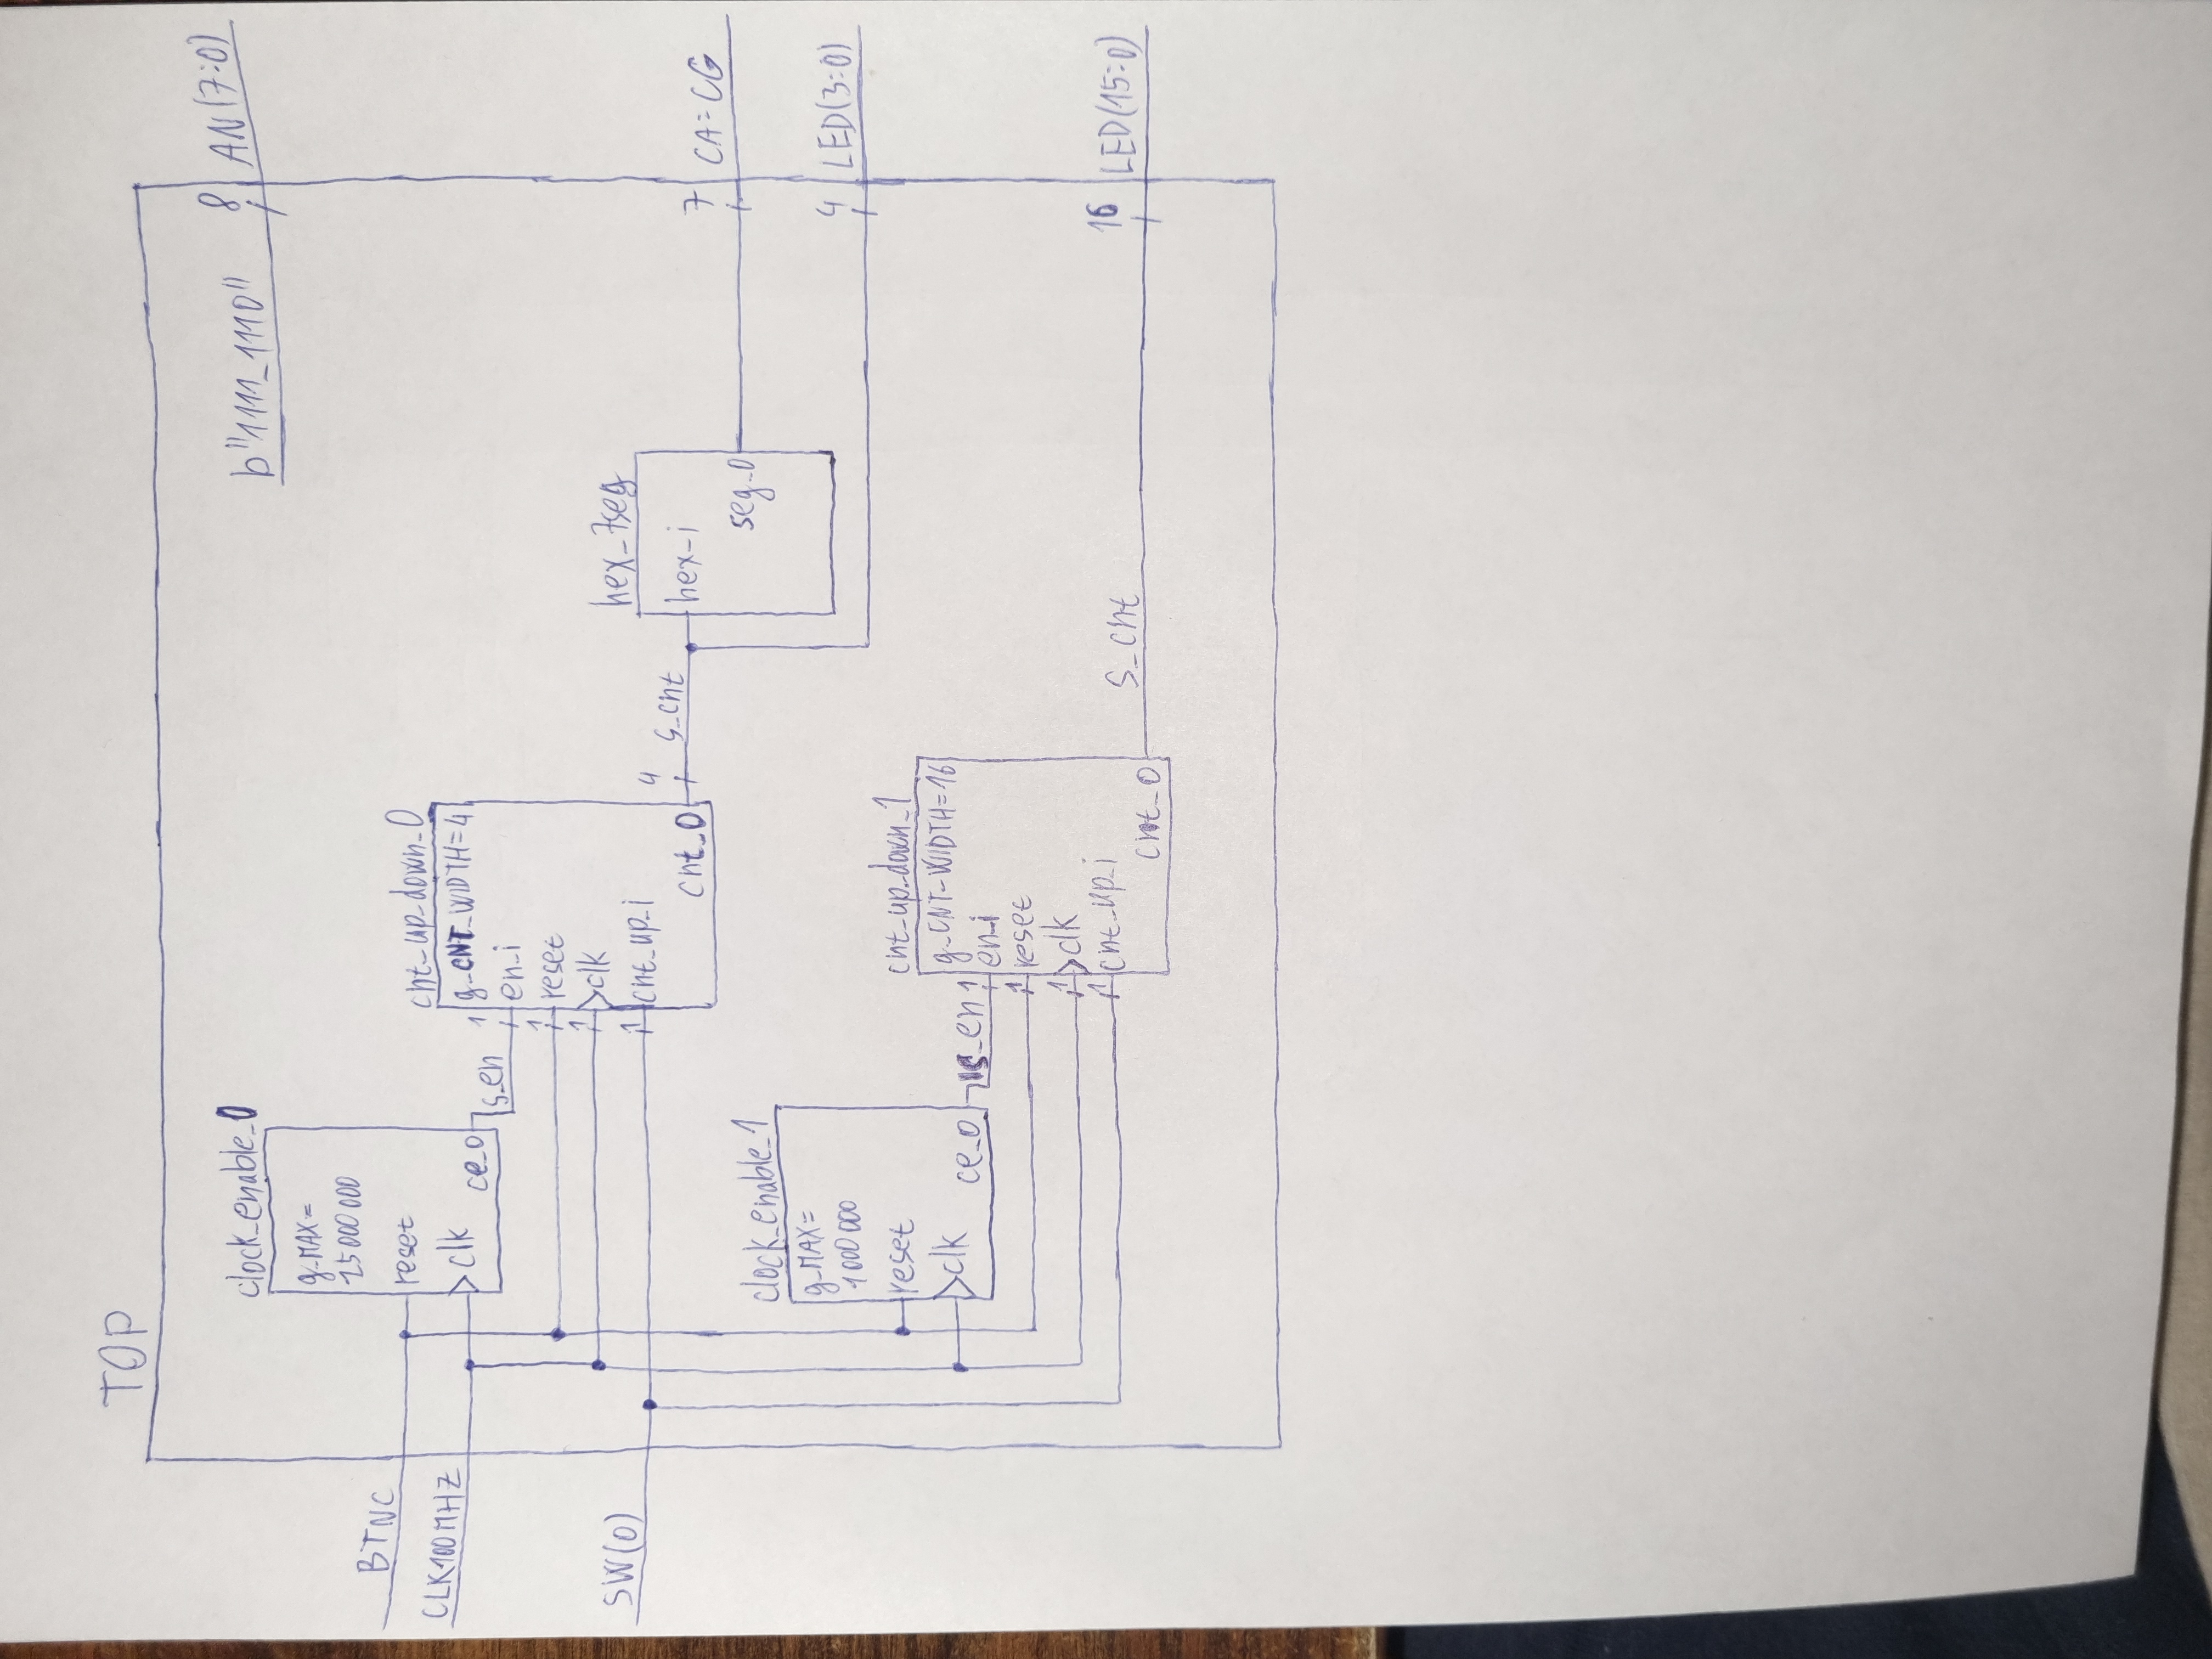 TOP
b"1111_1110"
8
AN(7:0)
clock_enable_0
g_MAX=
25000000
reset
clk
ce_0
BTNC
CLK100MHZ
SW(0)
s_en
cnt_up_down_0
g_CNT_WIDTH=4
1
en_i
1
reset
1
clk
1
cnt_up_i
cnt_0
4
s_cnt
hex_7seg
hex_i
seg_0
7
CA:CG
4
LED(3:0)
clock_enable_1
g_MAX=
1000000
reset
clk
ce_0
s_en
cnt_up_down_1
g_CNT_WIDTH=16
1
en_i
1
reset
1
clk
1
cnt_up_i
cnt_0
s_cnt
16
LED(15:0)